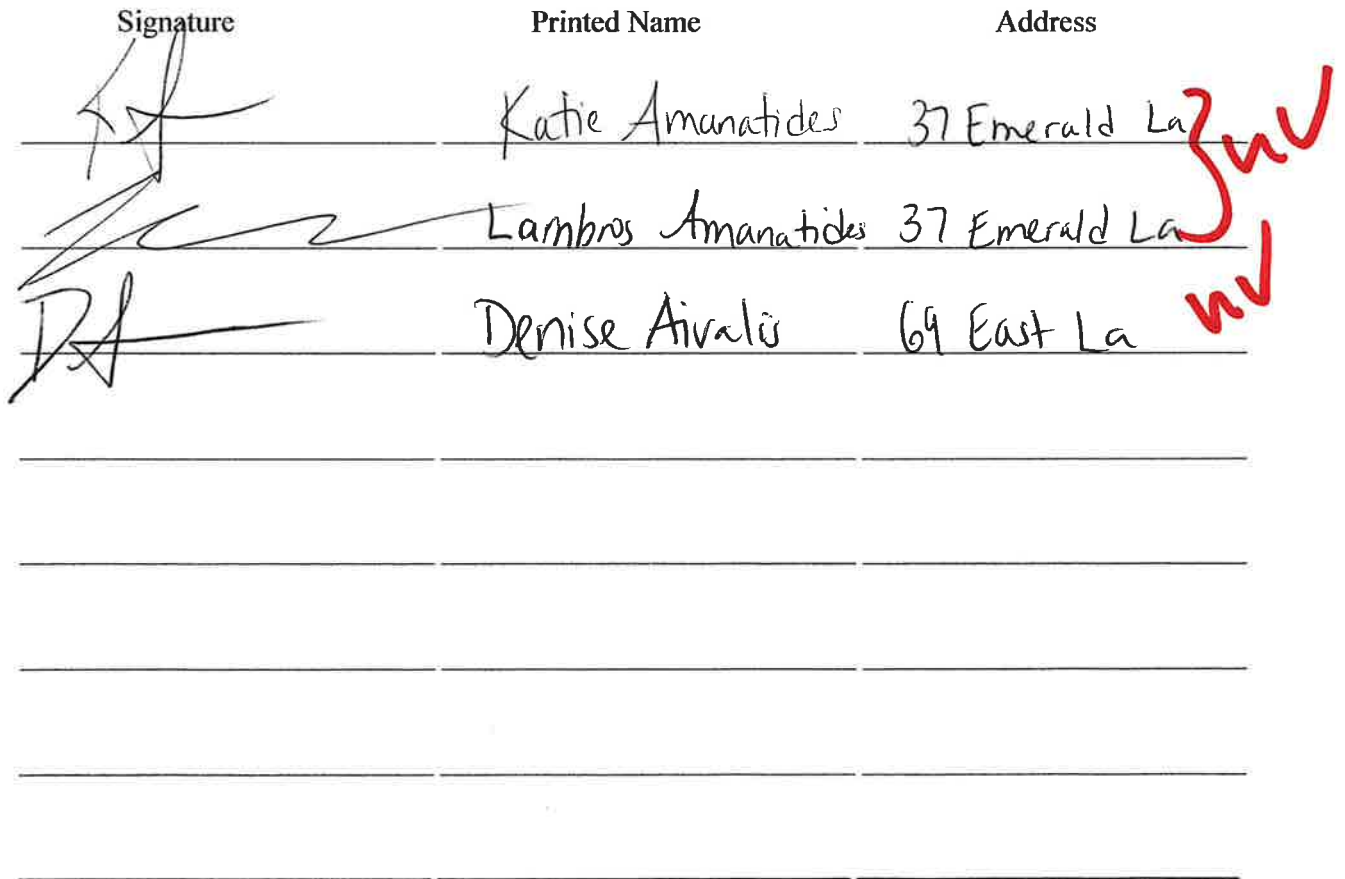 Signature Printed Name Address
Katie Amanatides 37 Emerald La
nv
Lambros Amanatides 37 Emerald La
Denise Aivalis 69 East La
nv